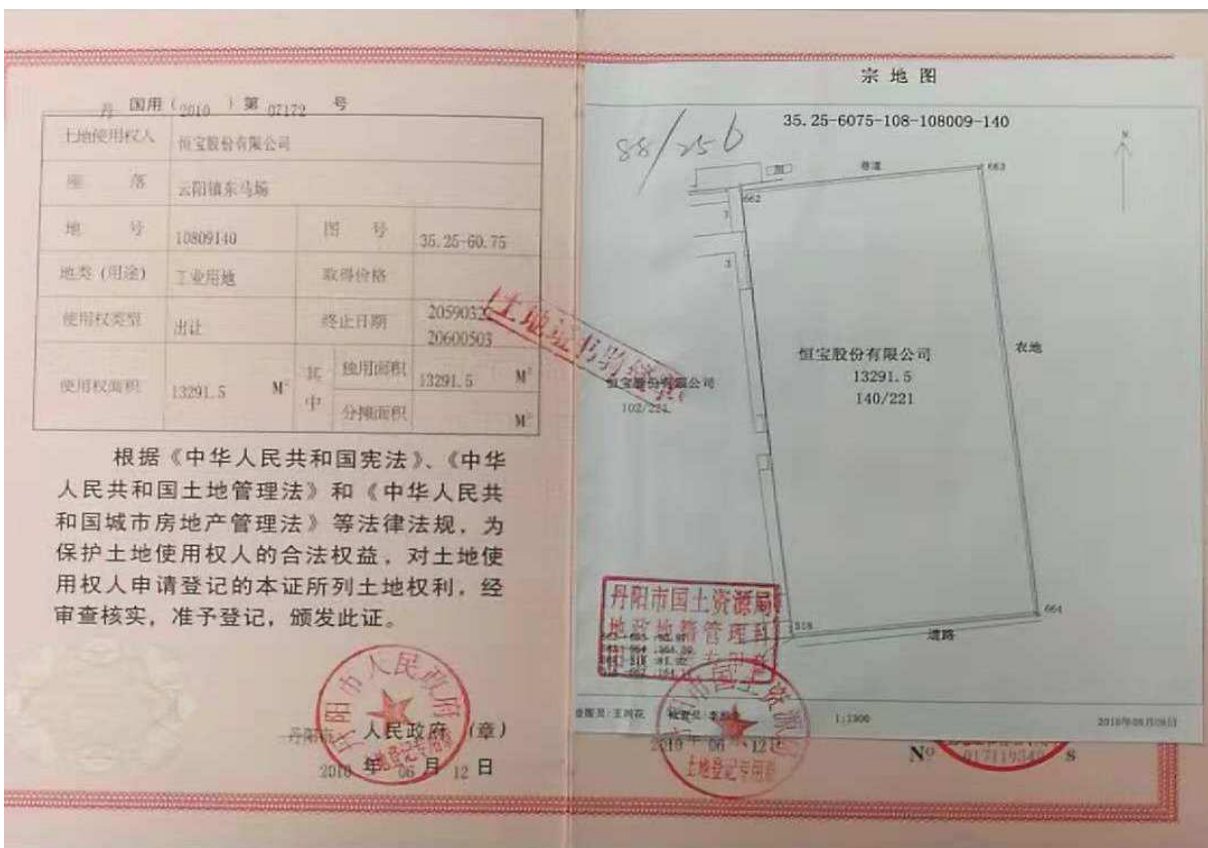 丹 国用（2010 ）第 07172 号
土地使用权人 恒宝股份有限公司
座 落 云阳镇东马场
地 号 10809140 图 号 35.25-60.75
地类（用途） 工业用地 取得价格
使用权类型 出让 终止日期 2059032
20600503
使用权面积 13291.5 M² 其中 独用面积 13291.5 M²
分摊面积 M²
根据《中华人民共和国宪法》、《中华
人民共和国土地管理法》和《中华人民共
和国城市房地产管理法》等法律法规，为
保护土地使用权人的合法权益，对土地使
用权人申请登记的本证所列土地权利，经
审查核实，准予登记，颁发此证。
丹阳市 人民政府（章）
2010 年 06 月 12 日
丹阳市人民政府
土地登记专用章
宗 地 图
35.25-6075-108-108009-140
88/256
N
巷道
663
662
1
3
农地
恒宝股份有限公司
13291.5
140/221
恒宝股份有限公司
土地证书
丹阳市国土资源局
地政地籍管理科
518
664
道路
1:1300
2010 06 12
土地登记专用章
Nº